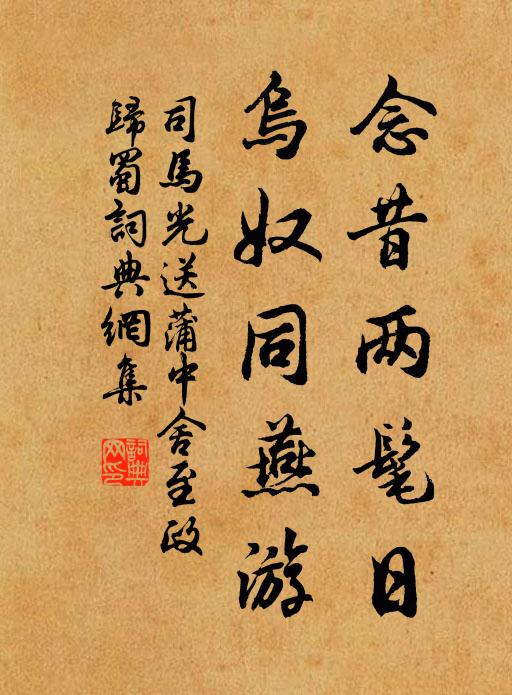 念昔两髦日
烏奴同燕游
司馬光送蒲中舍至政
歸蜀詞典網集
詞典网印